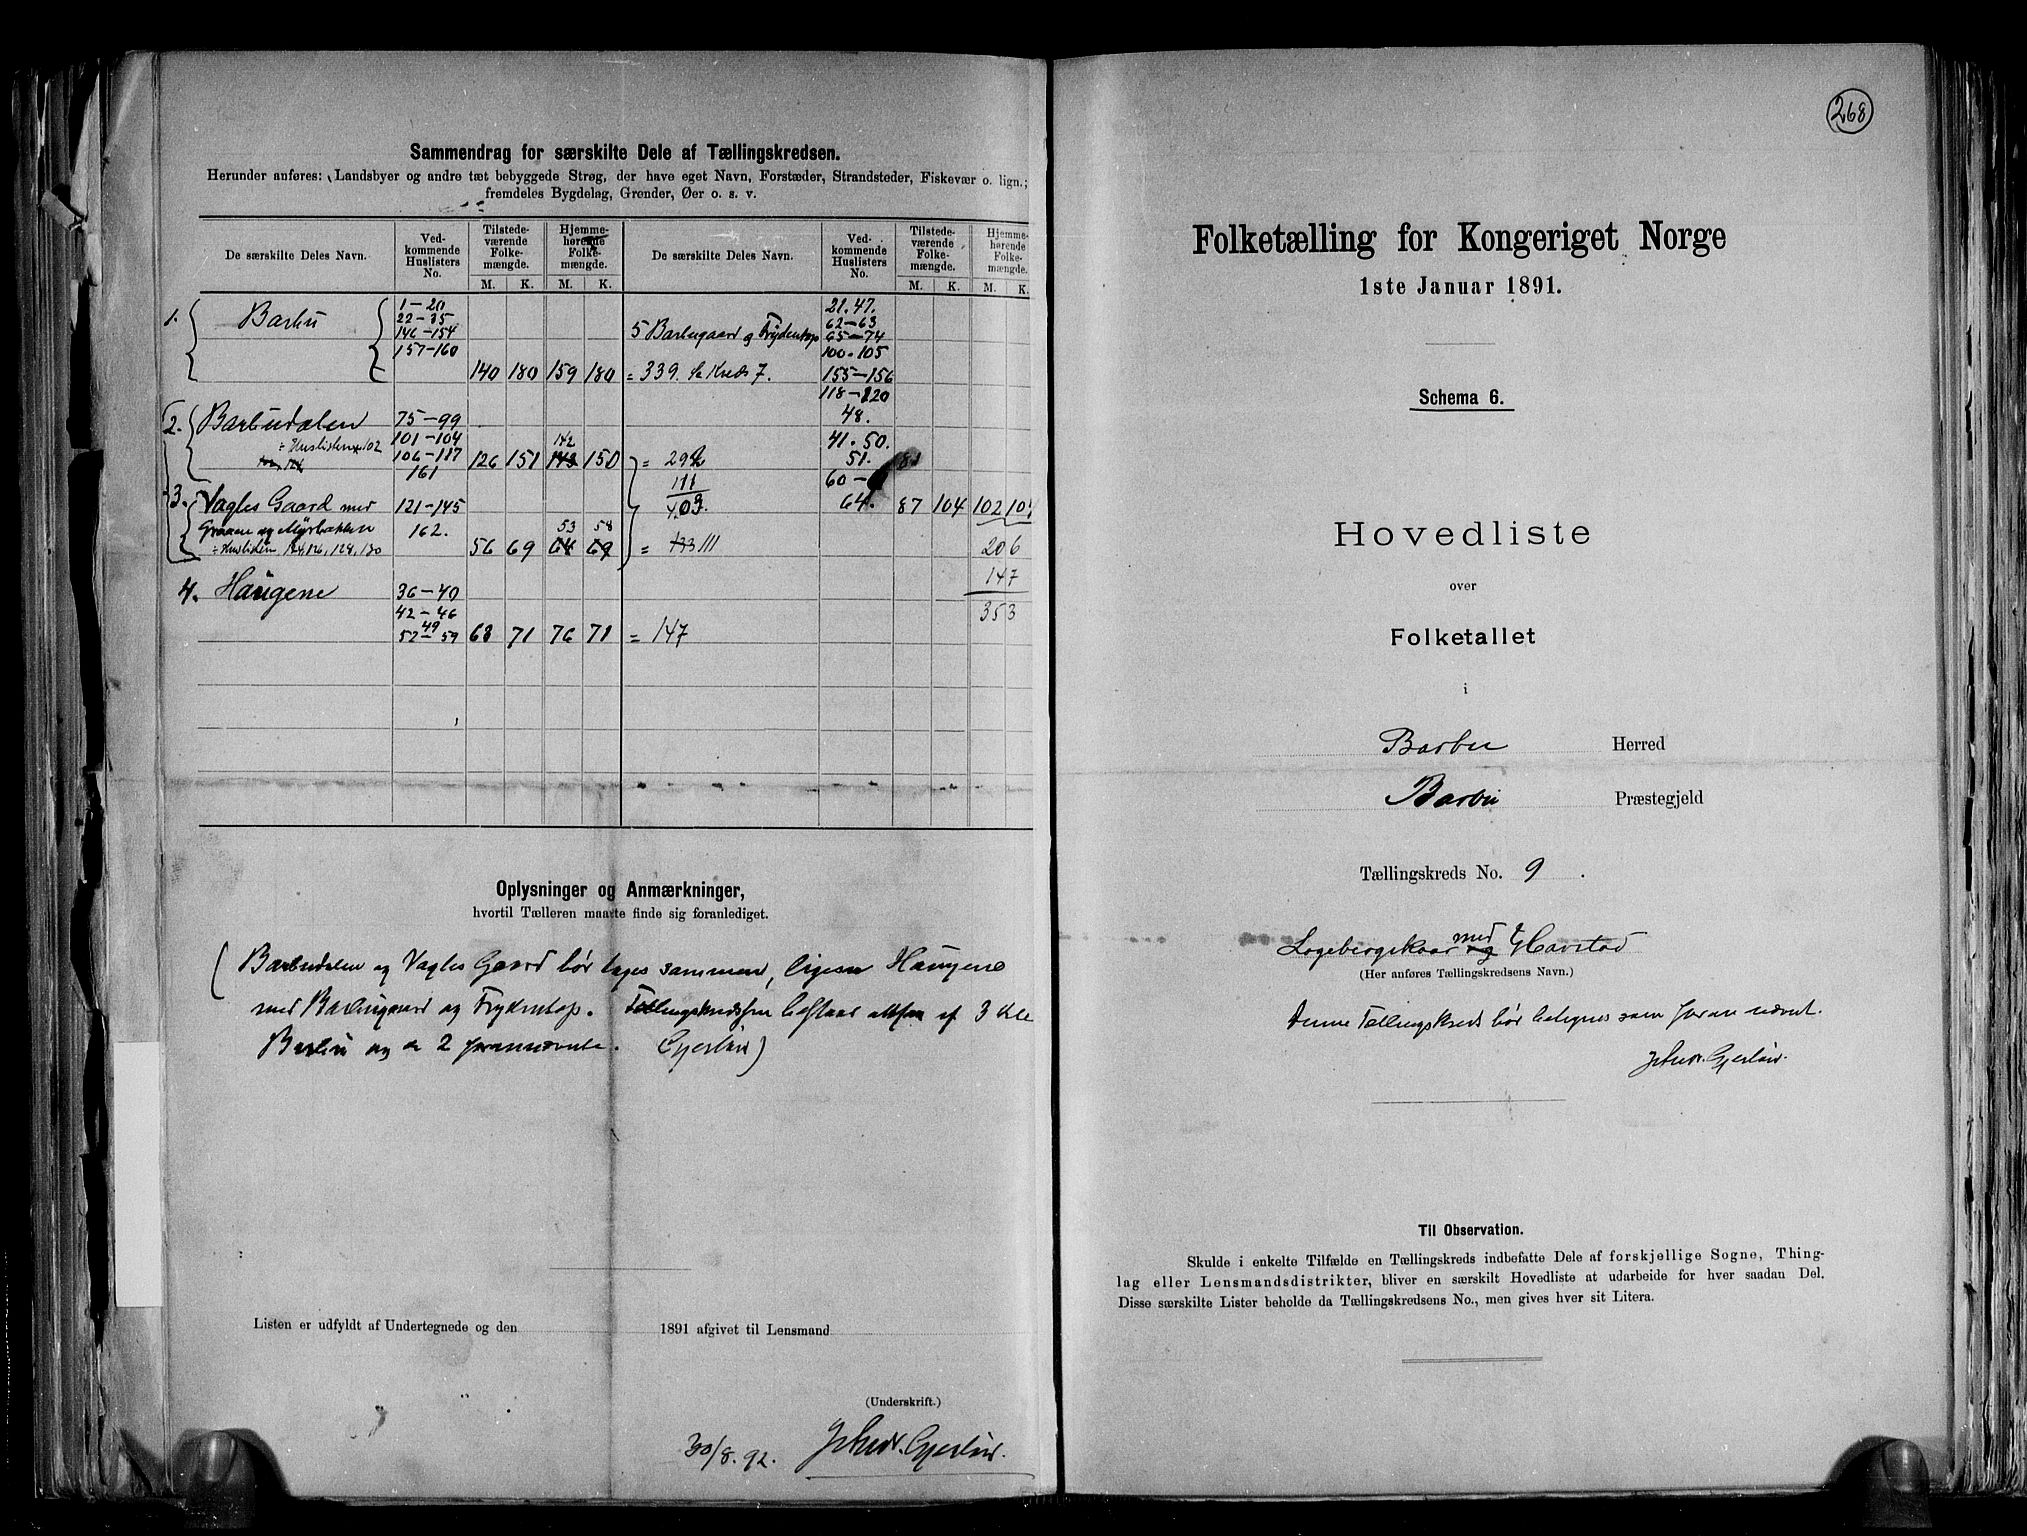 Sammendrag for særskilte Dele af Tællingskredsen.
Herunder anføres: Landsbyer og andre tæt bebyggede Strøg, der have eget Navn, Forstæder, Strandsteder, Fiskevær o. lign.;
fremdeles Bygdelag, Grender, Øer o. s. v.
De særskilte Deles Navn. Ved-kommende Huslisters No. Tilstede-værende Folke-mængde. Hjemme-hørende Folke-mængde. De særskilte Deles Navn. Ved-kommende Huslisters No. Tilstede-værende Folke-mængde. Hjemme-hørende Folke-mængde.
M. K. M. K. M. K. M. K.
1. Barbu 1-20
22-35
146-154
157-160
140 180 159 180 = 339. Kreds 7.
2. Barbudalen 75-99
÷ Huslisten 102 101-104
106-117
161
126 151 142 143 150 = 292
111
403.
3. Vagles Gaard med 121-145
Graaen og Myrbakken 162.
÷ Huslisten, 124, 126, 128, 130
56 69 53 58 64 69 = 133 111
4. Haugene 36-40
42-46
49
52-59
63 71 76 71 = 147
5 Barbugaard og Frydentop 21. 47.
62-63
65-74
100. 105
155-156
118-120
48.
41. 50.
51.
60-
64. 87 104 102 104
206
147
353
Oplysninger og Anmærkninger,
hvortil Tælleren maatte finde sig foranlediget.
(Barbudalen og Vagles Gaard bør tages sammen, ligesom Haugene
med Barbugaard og Frydentop. Tællingskredsen bestaar altsaa af 3 Dele
Barbu og de 2 forannævnte. Gjerløw)
Listen er udfyldt af Undertegnede og den 1891 afgivet til Lensmand
(Underskrift.)
30/8.92. Gjerløw.
268
Folketælling for Kongeriget Norge
1ste Januar 1891.
Schema 6.
Hovedliste
over
Folketallet
i
Barbu Herred
Barbu Præstegjeld
Tællingskreds No. 9.
Logebergskaar med og Havstad
(Her anføres Tællingskredsens Navn.)
Denne Tællingskreds bør betegnes som foran nævnt.
Gjerløw.
Til Observation.
Skulde i enkelte Tilfælde en Tællingskreds indbefatte Dele af forskjellige Sogne, Thing-
lag eller Lensmandsdistrikter, bliver en særskilt Hovedliste at udarbeide for hver saadan Del.
Disse særskilte Lister beholde da Tællingskredsens No., men gives hver sit Litera.